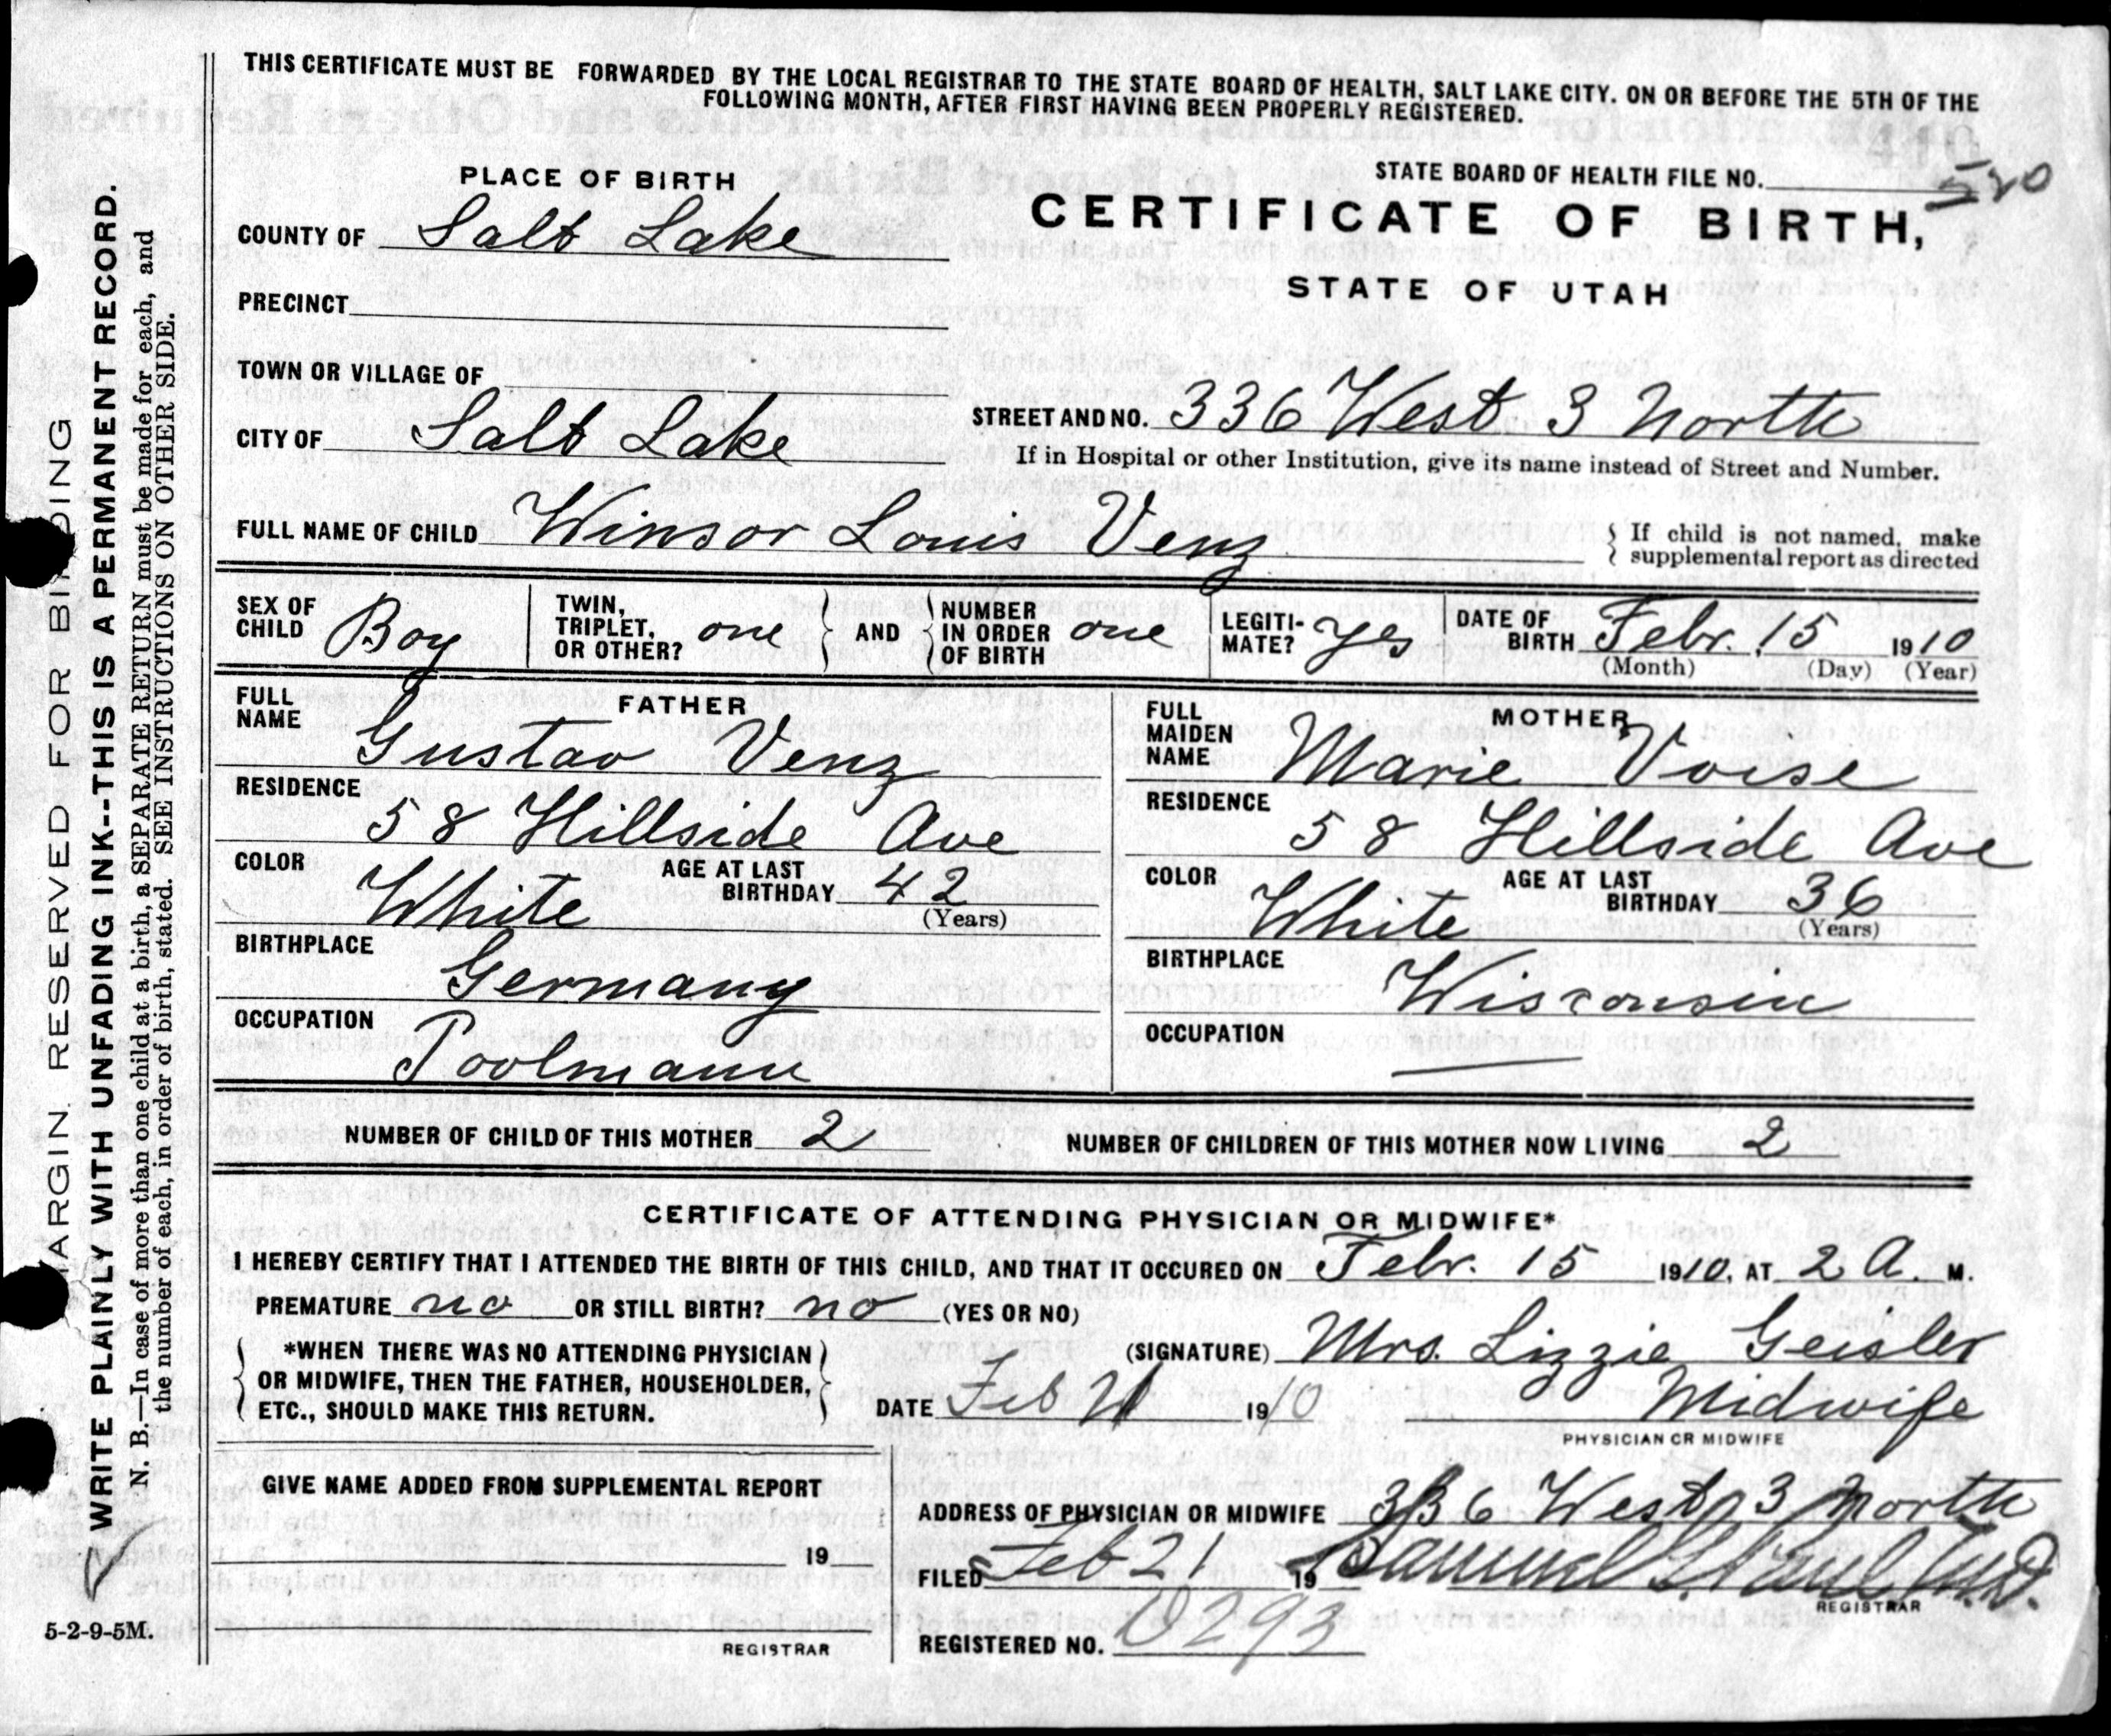 THIS CERTIFICATE MUST BE FORWARDED BY THE LOCAL REGISTRAR TO THE STATE BOARD OF HEALTH, SALT LAKE CITY. ON OR BEFORE THE 5TH OF THE
FOLLOWING MONTH, AFTER FIRST HAVING BEEN PROPERLY REGISTERED.
PLACE OF BIRTH
STATE BOARD OF HEALTH FILE NO.
CERTIFICATE OF BIRTH,
STATE OF UTAH
COUNTY OF Salt Lake
PRECINCT
TOWN OR VILLAGE OF
CITY OF Salt Lake
STREET AND NO. 336 West 3 North
If in Hospital or other Institution, give its name instead of Street and Number.
FULL NAME OF CHILD Winsor Louis Venz
{ If child is not named, make
supplemental report as directed
SEX OF CHILD Boy
TWIN, TRIPLET, OR OTHER? one } AND { NUMBER IN ORDER OF BIRTH one
LEGITI-MATE? yes
DATE OF BIRTH Febr. 15 1910
(Month) (Day) (Year)
FATHER
FULL NAME Gustav Venz
RESIDENCE
58 Hillside Ave
COLOR White AGE AT LAST BIRTHDAY 42
(Years)
BIRTHPLACE
Germany
OCCUPATION
Poolmann
MOTHER
FULL MAIDEN NAME Marie Voise
RESIDENCE
58 Hillside Ave
COLOR White AGE AT LAST BIRTHDAY 36
(Years)
BIRTHPLACE
Wisconsin
OCCUPATION
NUMBER OF CHILD OF THIS MOTHER 2 NUMBER OF CHILDREN OF THIS MOTHER NOW LIVING 2
CERTIFICATE OF ATTENDING PHYSICIAN OR MIDWIFE*
I HEREBY CERTIFY THAT I ATTENDED THE BIRTH OF THIS CHILD, AND THAT IT OCCURED ON Febr. 15 1910, AT 2 A. M.
PREMATURE no OR STILL BIRTH? no (YES OR NO)
{ *WHEN THERE WAS NO ATTENDING PHYSICIAN
OR MIDWIFE, THEN THE FATHER, HOUSEHOLDER,
ETC., SHOULD MAKE THIS RETURN. }
(SIGNATURE) Mrs. Lizzie Geisler
DATE Feb 21 1910 Midwife
PHYSICIAN OR MIDWIFE
GIVE NAME ADDED FROM SUPPLEMENTAL REPORT
19
REGISTRAR
ADDRESS OF PHYSICIAN OR MIDWIFE 336 West 3 North
FILED Feb 21 19 Samuel G. Paul M.D.
REGISTRAR
REGISTERED NO. 0293
MARGIN RESERVED FOR BINDING
WRITE PLAINLY WITH UNFADING INK--THIS IS A PERMANENT RECORD.
N. B.—In case of more than one child at a birth, a SEPARATE RETURN must be made for each, and
the number of each, in order of birth, stated. SEE INSTRUCTIONS ON OTHER SIDE.
5-2-9-5M.